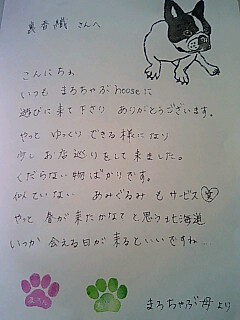 裏音職 さんへ
こんにちわ
いつも まろちゃぶhouseに
遊びに来て下さり ありがとうございます。
やっと ゆっくり できる様になり
少し お店巡りをして来ました。
くだらない物ばかりです。
似ていない あみぐるみ も サービス
やっと 春が来たかなぁて と思う北海道
いつか 会える日が 来るといいですね…
まろちゃぶ母より